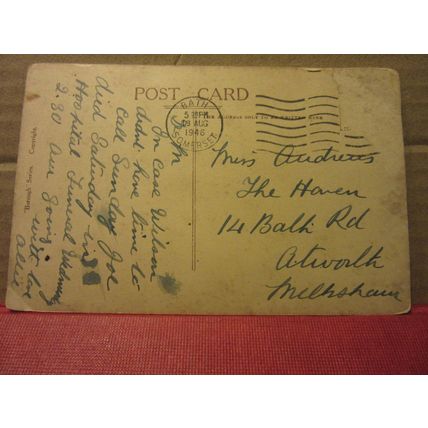 POST CARD
THE ADDRESS ONLY TO BE WRITTEN HERE
BATH
5 PM
19 AUG
1946
SOMERSET
In case Wilson
didnt have time to
call Sunday Joe
died Saturday in
Hospital Funeral Wednesday
2.30 am going
with love
Alice
Miss Andrews
The Haven
14 Bath Rd
Atworth
Melksham
Copyright.